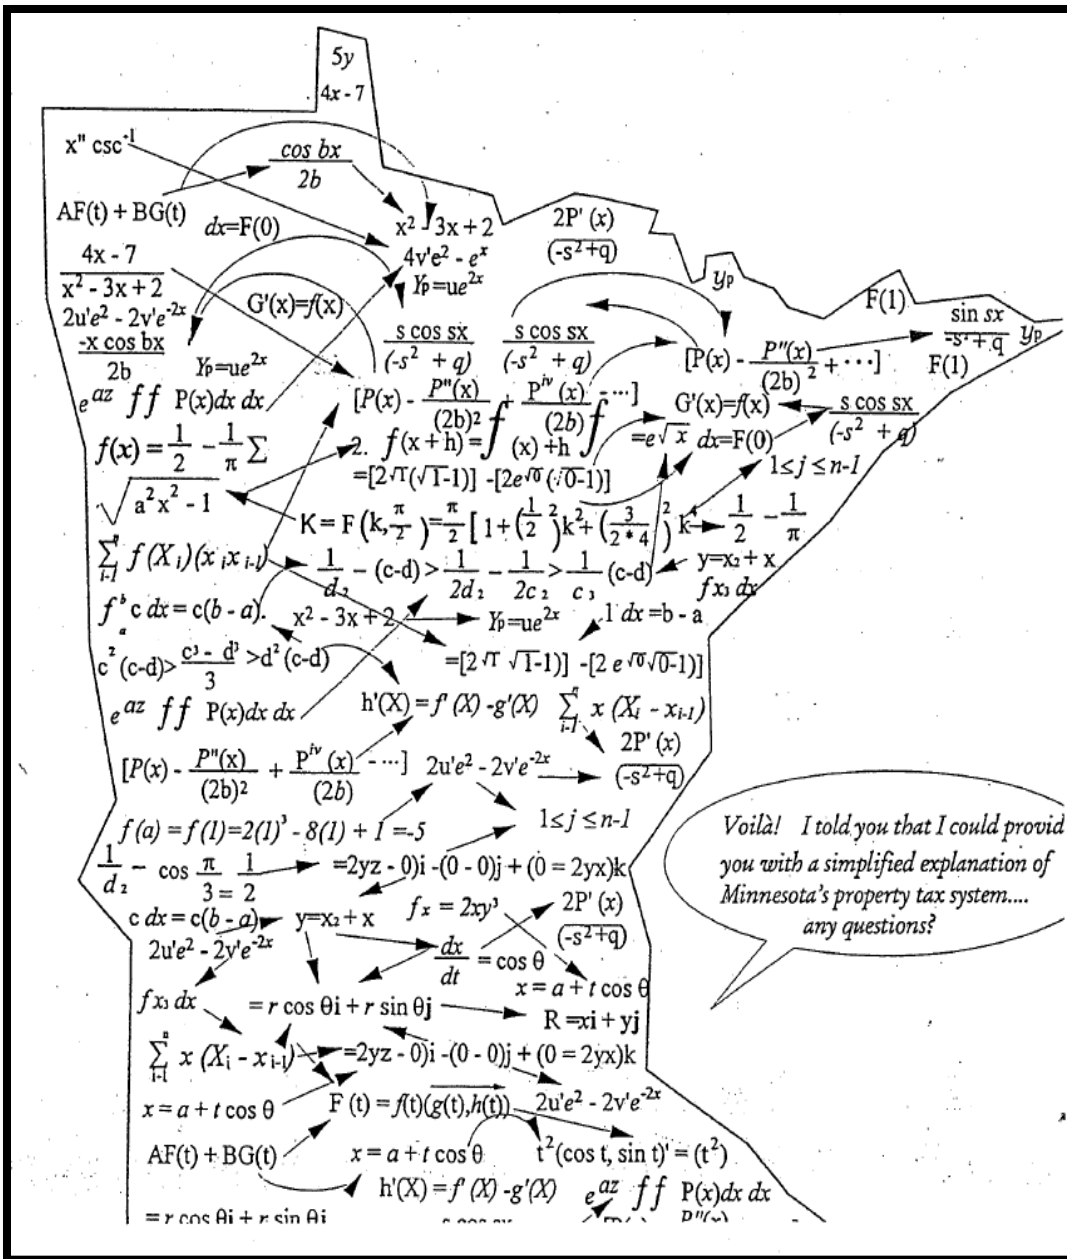 5y
4x - 7
x" csc⁻¹
cos bx
2b
AF(t) + BG(t)
dx=F(0)
x² - 3x + 2
4v'e² - eˣ
Yp=ue²ˣ
2P' (x)
(-s²+q)
yp
F(1)
sin sx
-s²+q
yp
F(1)
4x - 7
x² - 3x + 2
2u'e² - 2v'e⁻²ˣ
-x cos bx
2b
G'(x)=f(x)
Yp=ue²ˣ
s cos sx
(-s² + q)
s cos sx
(-s² + q)
[P(x) - P"(x)
(2b)² + ⋯]
e^az ff P(x)dx dx
[P(x) - P"(x)
(2b)² + P^iv (x)
(2b) - ⋯]
G'(x)=f(x)
s cos sx
(-s² + q)
f(x) = 1/2 - 1/π Σ
2. f(x + h) = ∫ (x) +h ∫
=e√x dx=F(0)
1≤ j ≤ n-1
=[2√1(√1-1)] -[2e√0(√0-1)]
√a²x² - 1
K = F (k, π/2) = π/2 [ 1+ (1/2 ²)k²+ (3/2*4)² k⁴
1/2 - 1/π
Σ f (Xi)(xi xi-1)
i-1
1/d₂ - (c-d) > 1/2d₂ - 1/2c₂ > 1/c₃ (c-d)
y=x₂ + x
fx₃ dx
f^b_a c dx = c(b - a).
x² - 3x + 2
Yp=ue²ˣ
1 dx =b - a
c² (c-d)> c³ - d³/3 >d² (c-d)
=[2√1 √1-1)] -[2 e√0√0-1)]
e^az ff P(x)dx dx
h'(X) = f' (X) -g'(X)
Σ x (Xi - xi-1)
i-1
2P' (x)
(-s²+q)
[P(x) - P"(x)
(2b)² + P^iv (x)
(2b) - ⋯]
2u'e² - 2v'e⁻²ˣ
f (a) = f (1)=2(1)³ - 8(1) + 1 =-5
1≤ j ≤ n-1
1/d₂ - cos π/3 = 1/2
=2yz - 0)i -(0 - 0)j + (0 = 2yx)k
c dx = c(b - a)
y=x₂ + x
fx = 2xy³
2P' (x)
(-s²+q)
2u'e² - 2v'e⁻²ˣ
dx/dt = cos θ
x = a + t cos θ
fx₃ dx
= r cos θi + r sin θj
R =xi + yj
Σ x (Xi - xi-1)
i-1
=2yz - 0)i -(0 - 0)j + (0 = 2yx)k
x = a + t cos θ
F (t) = f(t)(g(t),h(t))
2u'e² - 2v'e⁻²ˣ
AF(t) + BG(t)
x = a + t cos θ
t²(cos t, sin t)' = (t²)
h'(X) = f' (X) -g'(X)
e^az ff P(x)dx dx
= r cos θi + r sin θi
s cos sx
P"(x)
Voilà! I told you that I could provid
you with a simplified explanation of
Minnesota's property tax system....
any questions?